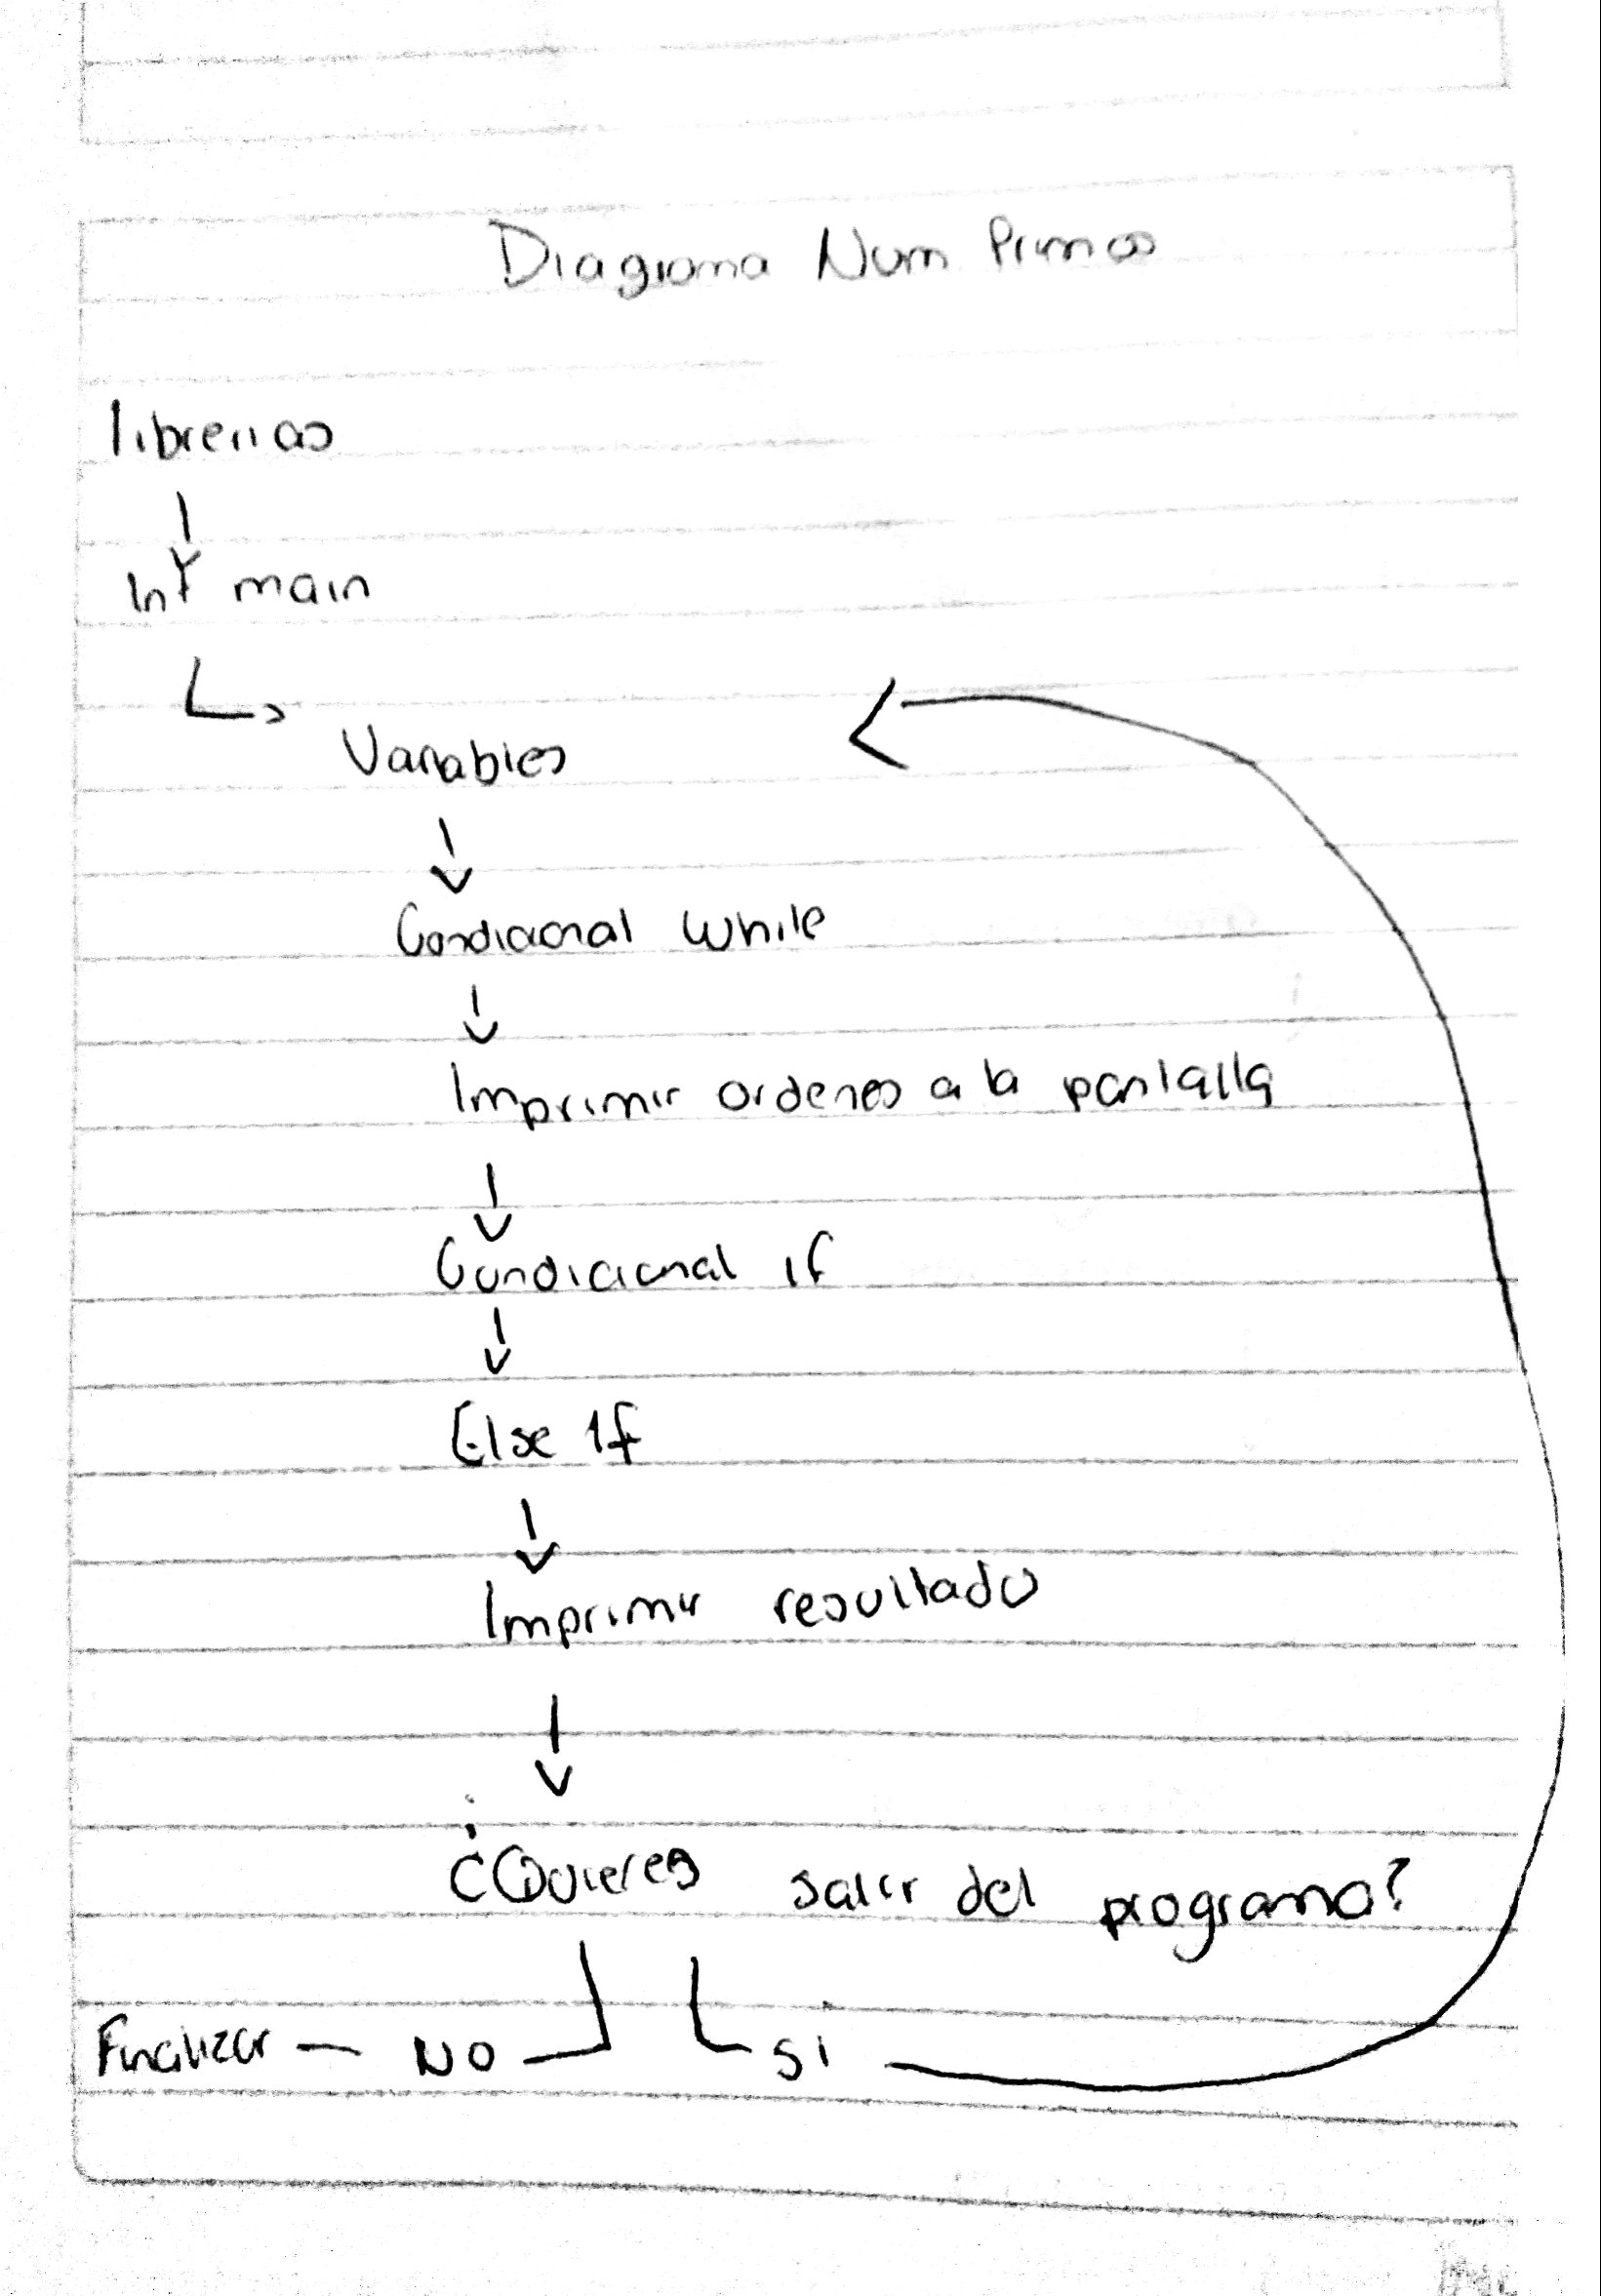 Diagrama Num Primos
librerias
Int main
Variables
Condicional While
Imprimir ordenes a la pantalla
Condicional if
Else If
Imprimir resultado
¿Quieres salir del programa?
Finalizar — NO
Si